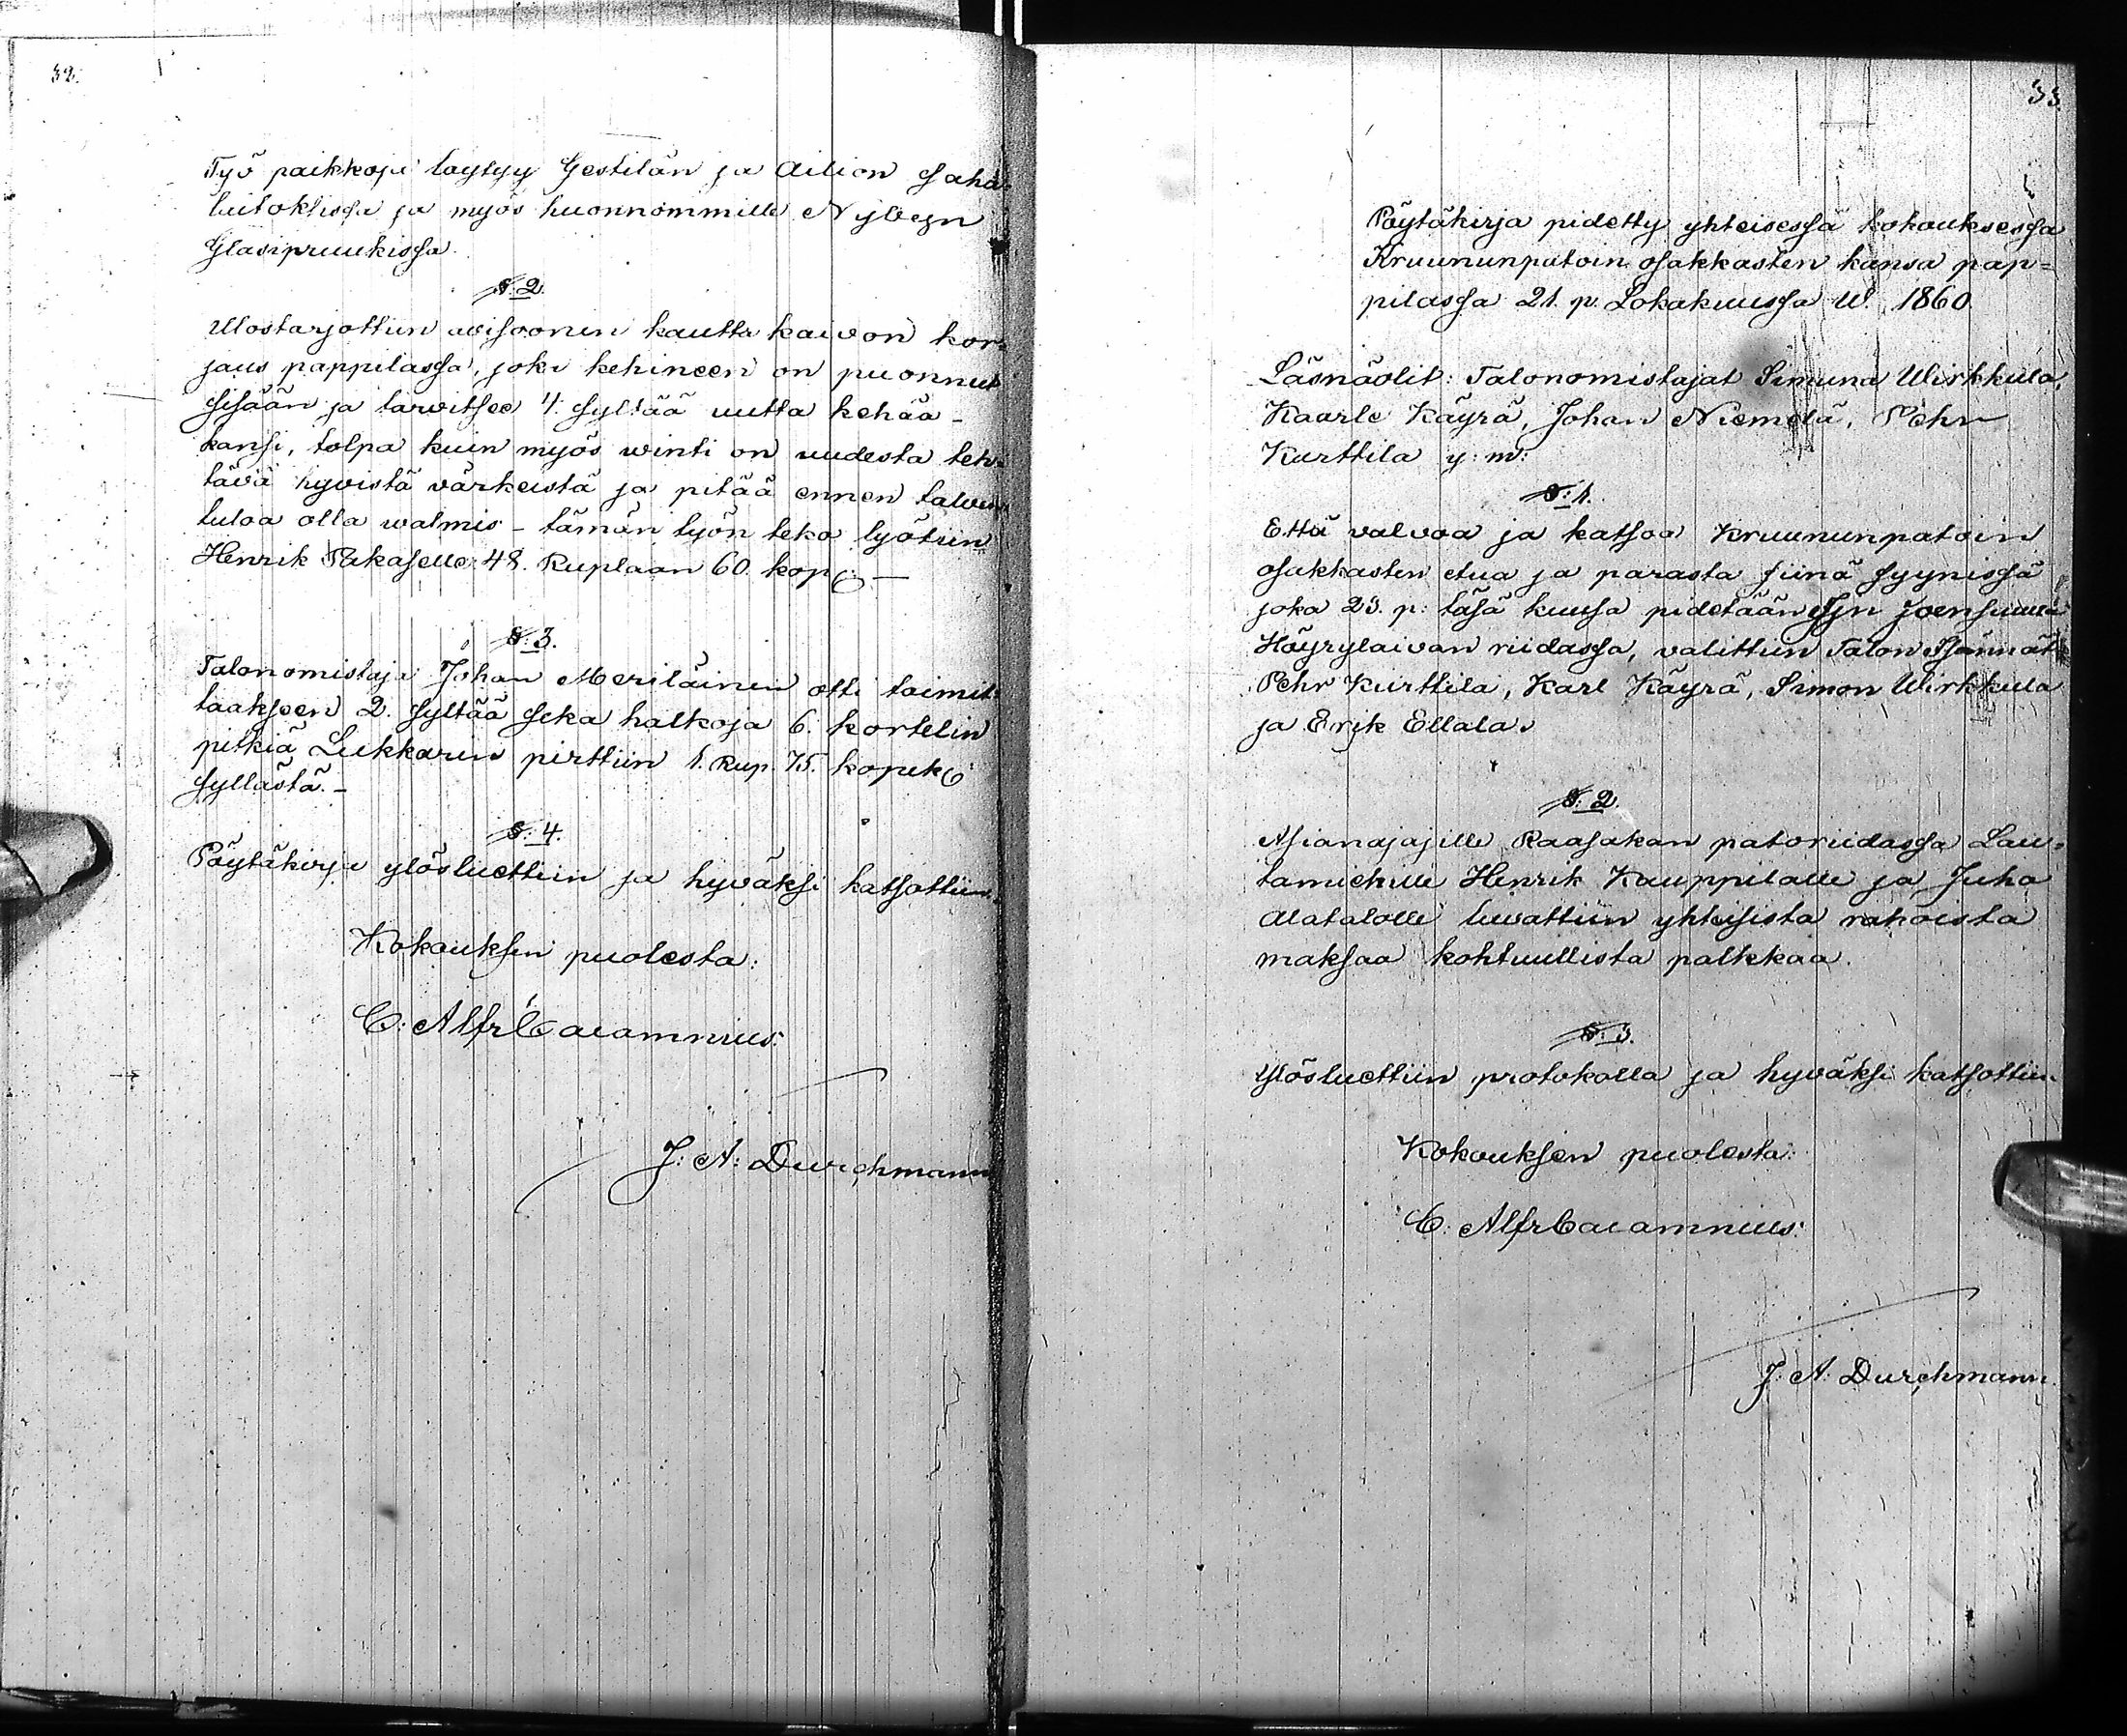 32.
Työ paikkoja löytyy Gestilän ja Ailion Saha-
laitoksissa ja myös huonnommille Nybyn
Glasipruukissa.
§. 2.
Ulostarjottiin auksoonin kautta kaivon kor-
jaus pappilassa, joka kehineen on puonnut
sisään ja tarvitsee 4. syltää uutta kehää –
kansi, tolpa kuin myös winti on uudesta teh-
tävä hyvistä värkeistä ja pitää ennen talven
tuloa olla walmis – tämän työn teko lyötiin
Henrik Pakaselle 48. Ruplaan 60. kop. –
§. 3.
Talonomistaja Johan Meriläinen otti toimit-
taaksen 2. syltää seka halkoja 6. kortelin
pitkiä Lukkarin pirttiin 1. Rup. 75. kopek.
syllästä. –
§. 4.
Pöytäkirja ylösluettiin ja hyväksi katsottiin.
Kokouksen puolesta:
C. Alfr Cajamnius.
J. A. Durchmann
33.
Pöytäkirja pidetty yhteisessä kokouksessa
Kruununpatoin osakkasten kansa pap-
pilassa 21. p. Lokakuussa W. 1860.
Läsnäolit: Talonomistajat Simuna Wirkkula,
Kaarle Käyrä, Johan Niemelä, Pehr
Kurttila y: m:
§. 1.
Että valvoa ja katsoa Kruununpatoin
osakkasten etua ja parasta siinä syynissä
joka 23. p. täsä kuusa pidetään Ijn Joensuussa
Höyrylaivan riidassa, valittiin Talon Isännät
Pehr Kurttila, Karl Käyrä, Simon Wirkkula
ja Erik Ellala.
§. 2.
Asianajajille Raasakan patoriidassa Lau-
tamiehille Henrik Kauppilalle ja Juho
Alatalolle luvattiin yhteisista rahoista
maksaa kohtuullista palkkaa.
§. 3.
Ylösluettiin protokolla ja hyväksi katsottiin.
Kokouksen puolesta:
C. Alfr Cajamnius.
J. A. Durchmann.